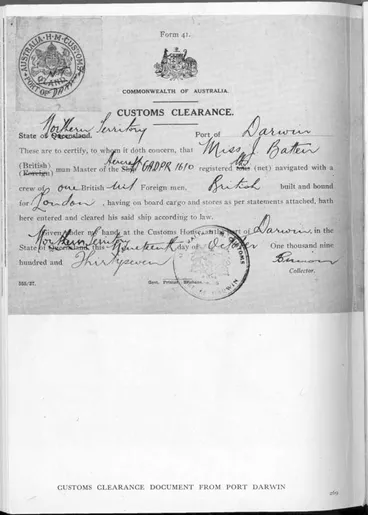 Form 41.
AUSTRALIA · H · M · CUSTOMS
PORT OF
COMMONWEALTH OF AUSTRALIA.
CUSTOMS CLEARANCE.
Northern Territory
State of Queensland. Port of Darwin
These are to certify, to whom it doth concern, that Miss J Batten
(British)
(Foreign) man Master of the Ship Aircraft GADPR 1610 registered tons (net) navigated with a
crew of one British Nil Foreign men, British built and bound
for London, having on board cargo and stores as per statements attached, hath
here entered and cleared his said ship according to law.
Given under my hand, at the Customs House, in the Port of Darwin, in the
Northern Territory
State of Queensland, this Nineteenth day of October One thousand nine
hundred and Thirtyseven
Collector.
CUSTOMS CLEARANCE DOCUMENT FROM PORT DARWIN